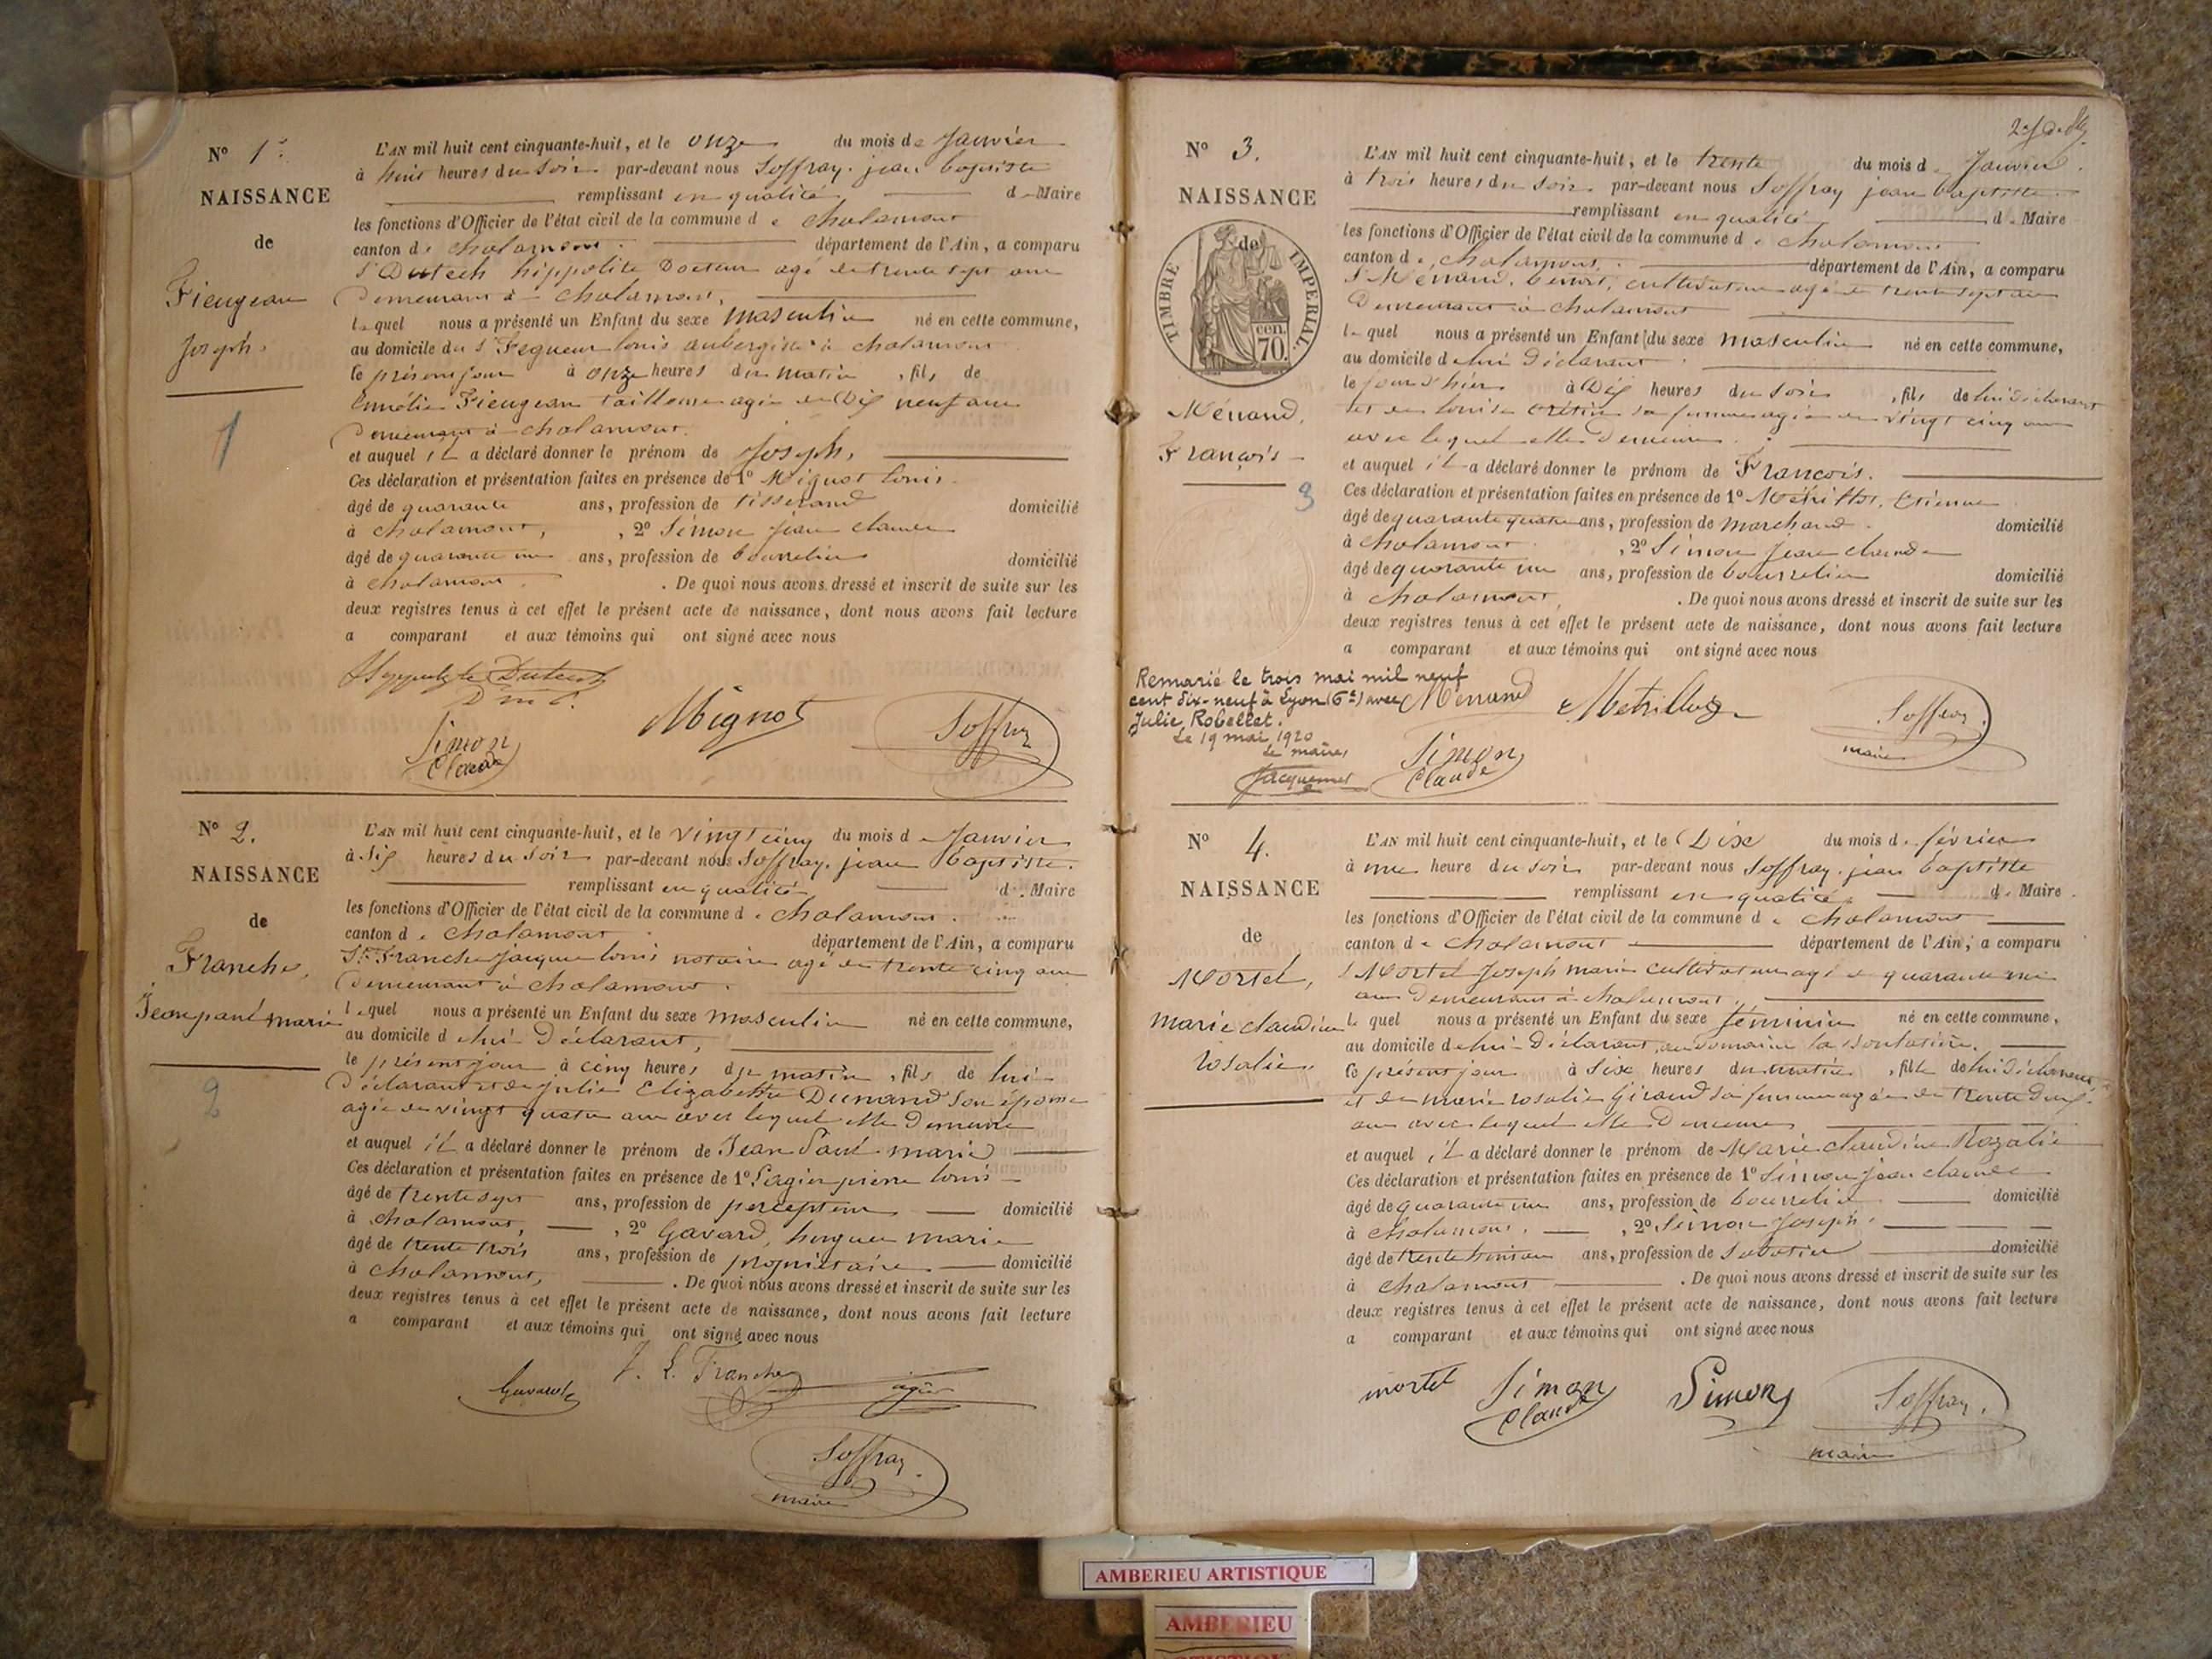 N° 1.
NAISSANCE
de
Fieugean
Joseph.
1
L'AN mil huit cent cinquante-huit, et le onze du mois de Janvier
à heures du soir par-devant nous Soffray. jean baptiste
remplissant en qualité de Maire
les fonctions d'Officier de l'état civil de la commune de chalamont
canton de chalamont. département de l'Ain, a comparu
hippolite Docteur agé de trente sept ans
Demeurant à chalamont,
lequel nous a présenté un Enfant du sexe masculin né en cette commune,
au domicile du s. louis aubergiste à chalamont
le présent jour à onze heures du matin, fils de
Fieugean tailleuse agée de Dix neuf ans
Demeurant à chalamont.
et auquel il a déclaré donner le prénom de Joseph,
Ces déclaration et présentation faites en présence de 1° Mignot louis
âgé de quarante ans, profession de tisserand domicilié
à chalamont, , 2° Simon jean claude
âgé de quarante un ans, profession de bourrelier domicilié
à chalamont. . De quoi nous avons dressé et inscrit de suite sur les
deux registres tenus à cet effet le présent acte de naissance, dont nous avons fait lecture
a comparant et aux témoins qui ont signé avec nous
Simon
Claude
Mignot
Soffray
N° 2.
NAISSANCE
de
Franche,
Jean paul marie
2
L'AN mil huit cent cinquante-huit, et le vingt cinq du mois de Janvier
à Six heures du soir par-devant nous Soffray. jean baptiste.
remplissant en qualité de Maire
les fonctions d'Officier de l'état civil de la commune de chalamont.
canton de chalamont département de l'Ain, a comparu
Sr. Franche jacques louis notaire agé de trente cinq ans
Demeurant à chalamont.
lequel nous a présenté un Enfant du sexe masculin né en cette commune,
au domicile de lui Déclarant,
le présent jour à cinq heures du matin, fils de lui
Déclarant et de julie Elizabeth Dunand son épouse
agée de vingt quatre ans avec lequel elle Demeure
et auquel il a déclaré donner le prénom de Jean Paul marie
Ces déclaration et présentation faites en présence de 1° pierre louis
âgé de trente sept ans, profession de percepteur domicilié
à chalamont, , 2° Gavard, hugues marie
âgé de trente trois ans, profession de propriétaire domicilié
à chalamont, . De quoi nous avons dressé et inscrit de suite sur les
deux registres tenus à cet effet le présent acte de naissance, dont nous avons fait lecture
a comparant et aux témoins qui ont signé avec nous
J. L. Franche
Soffray
maire
N° 3.
NAISSANCE
de
TIMBRE IMPERIAL
cen.
70.
Ménand,
François
3
L'AN mil huit cent cinquante-huit, et le trente du mois de Janvier.
à trois heures du soir par-devant nous Soffray jean baptiste
remplissant en qualité de Maire
les fonctions d'Officier de l'état civil de la commune de chalamont
canton de chalamont, département de l'Ain, a comparu
s. Ménand, benoit, cultivateur agé de trente sept ans
Demeurant à chalamont
lequel nous a présenté un Enfant du sexe masculin né en cette commune,
au domicile de lui Déclarant.
le jour d'hier à Dix heures du soir, fils de lui déclarant
et de louise sa femme agée de vingt cinq ans
avec lequel elle Demeure.
et auquel il a déclaré donner le prénom de François.
Ces déclaration et présentation faites en présence de 1° Etienne
âgé de quarante quatre ans, profession de marchand. domicilié
à chalamont , 2° Simon jean claude
âgé de quarante un ans, profession de bourrelier domicilié
à chalamont, . De quoi nous avons dressé et inscrit de suite sur les
deux registres tenus à cet effet le présent acte de naissance, dont nous avons fait lecture
a comparant et aux témoins qui ont signé avec nous
Remarié le trois mai mil neuf
cent dix-neuf à Lyon (6e) avec
Julie Robellet.
Le 19 mai 1920
Le maire,
Jacquemet
Ménand
Simon
Claude
Soffray
maire
N° 4.
NAISSANCE
de
Mortel,
marie claudine
rosalie.
L'AN mil huit cent cinquante-huit, et le Dix du mois de février
à une heure du soir par-devant nous Soffray. jean baptiste
remplissant en qualité de Maire
les fonctions d'Officier de l'état civil de la commune de chalamont
canton de chalamont département de l'Ain, a comparu
s Mortel Joseph marie cultivateur agé de quarante un
ans Demeurant à chalamont,
lequel nous a présenté un Enfant du sexe féminin né en cette commune,
au domicile de lui Déclarant, au domaine la
le présent jour à Six heures du matin, fille de lui déclarant,
et de marie rosalie Giraud sa femme agée de trente Deux
ans avec lequel elle Demeure
et auquel il a déclaré donner le prénom de Marie claudine Rozalie
Ces déclaration et présentation faites en présence de 1° Simon jean claude
âgé de quarante un ans, profession de bourrelier domicilié
à chalamont. , 2° Simon Joseph,
âgé de ans, profession de sabotier domicilié
à chalamont . De quoi nous avons dressé et inscrit de suite sur les
deux registres tenus à cet effet le présent acte de naissance, dont nous avons fait lecture
a comparant et aux témoins qui ont signé avec nous
mortel
Simon
Claude
Simon
Soffray.
maire
AMBERIEU ARTISTIQUE
AMBERIEU